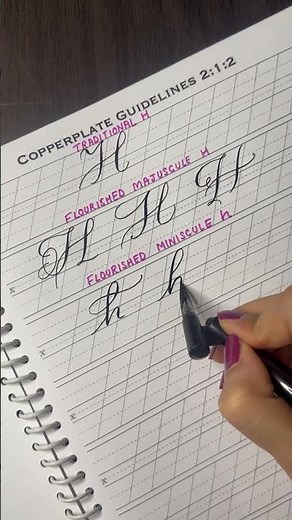 COPPERPLATE GUIDELINES 2:1:2
TRADITIONAL H
H
FLOURISHED MAJUSCULE H
H H H
FLOURISHED MINISCULE h
h h
x
x
x
x